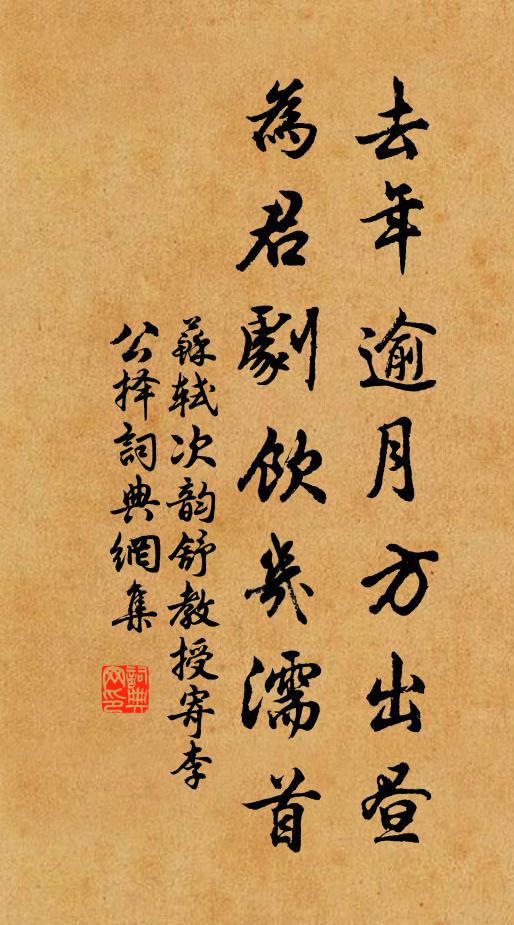 去年逾月方出昼
為君劇飲幾濡首
蘇軾次韵舒教授寄李
公择詞典網集
詞典网印